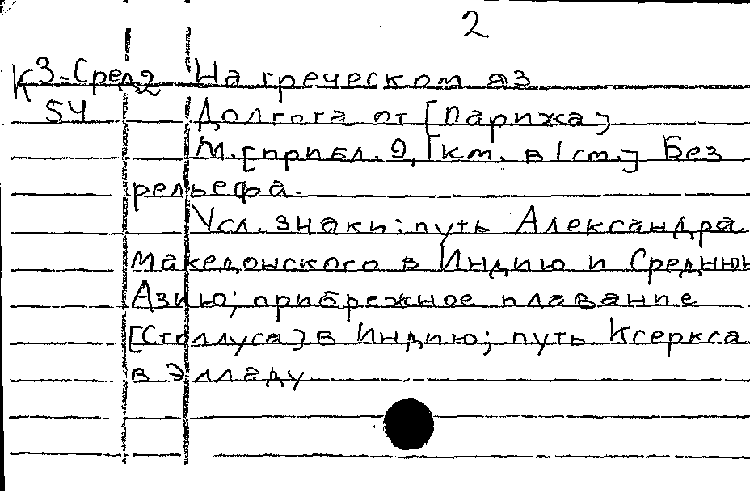 2
К 3-Сред.2 На греческом яз
54 Долгота от [Парижа]
М.[прибл. 9,1км. в 1см.] Без
рельефа.
Усл. знаки: путь Александра
Македонского в Индию и Средню
Азию; прибрежное плавание
в Индию; путь Ксеркса
в Элладу